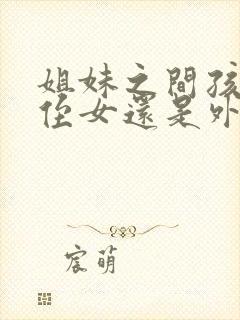 姐妹之間孩
侄女還是外
宸萌